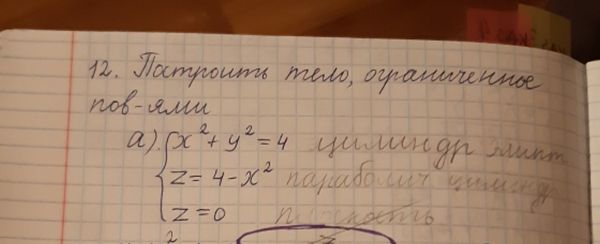 12. Построить тело, ограниченное
пов-ями
а) x² + y² = 4 цилиндр элипт
z = 4 - x² параболич цилиндр
z = 0 плоскость